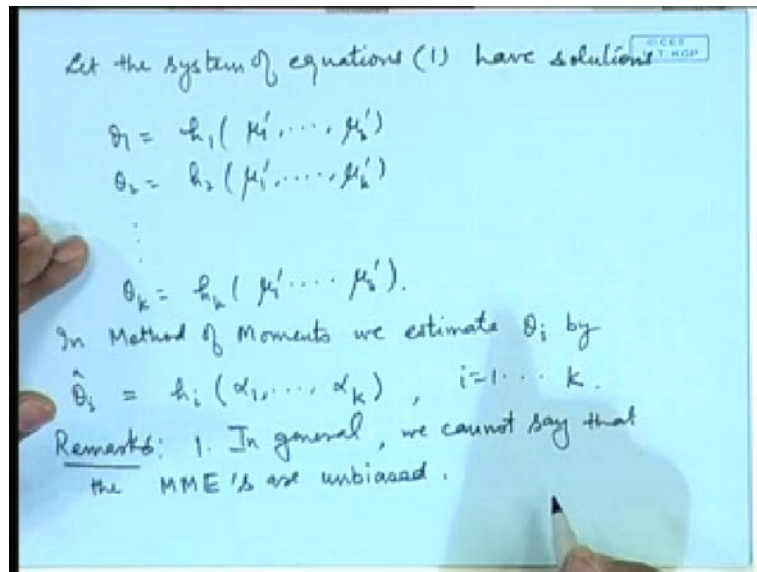 Let the system of equations (1) have solutions
θ₁ = h₁ ( μ₁', ..., μₖ')
θ₂ = h₂ ( μ₁', ...., μₖ')
⋮
θₖ = hₖ ( μ₁' .... μₖ').
In Method of Moments we estimate θᵢ by
θ̂ᵢ = hᵢ (α₁, ..., αₖ) , i=1 ... k.
Remarks: 1. In general, we cannot say that
the MME's are unbiased.